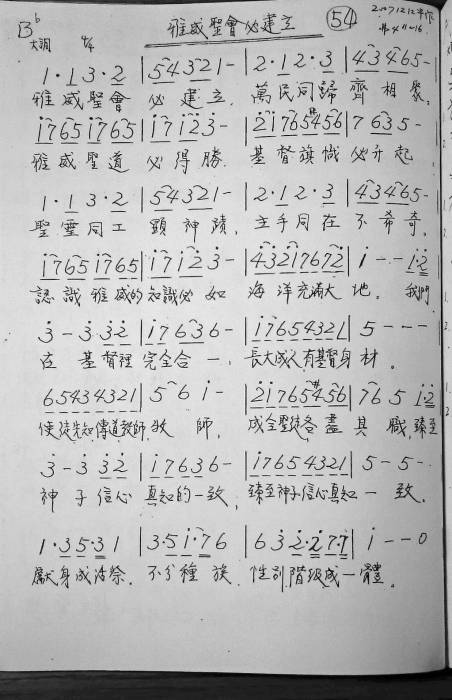 B♭ 大調 4/4 雅威聖會必建立 54 2007.12.12
1·1 3·2 | 5 4 3 2 1 - | 2·1 2·3 | 4 3 4 6 5 -
雅威聖會 必建立, 萬民同歸 齊相聚。
1̇765 1̇765 | 1̇ 7 1̇ 2̇ 3̇ - | 2̇1̇765#456 | 7 6 3 5 -
雅威聖道 必得勝. 基督旗幟 必升起
1·1 3·2 | 5 4 3 2 1 - | 2·1 2·3 | 4 3 4 6 5 -
聖靈同工 顯神蹟, 主手同在 不希奇,
1̇765 1̇765 | 1̇ 7 1̇ 2̇ 3̇ - | 4̇3̇2̇1̇7672̇ | 1̇ - - 1̇·2̇
認識雅威的知識必如 海洋充滿大地。 我們
3̇ - 3̇ 3̇2̇ | 1̇ 7 6 3 6 - | 1̇7654321 | 5 - - -
在 基督裡 完全合一, 長大成人有基督身材.
65434321 | 5 6 1̇ - | 2̇1̇765#456 | 7 6 5 1̇·2̇
使徒先知傳道教師,牧師, 成全聖徒各盡其職,臻至
3̇ - 3̇ 3̇2̇ | 1̇ 7 6 3 6 - | 1̇7654321 | 5 - 5 -
神子信心 真知的一致, 臻至神子信心真知一致.
1·3 5·3 1 | 3·5 1̇·7 6 | 6 3̇ 2̇·2̇ 7·7 | 1̇ - - 0
獻身成活祭. 不分種族, 性別階級成一體。